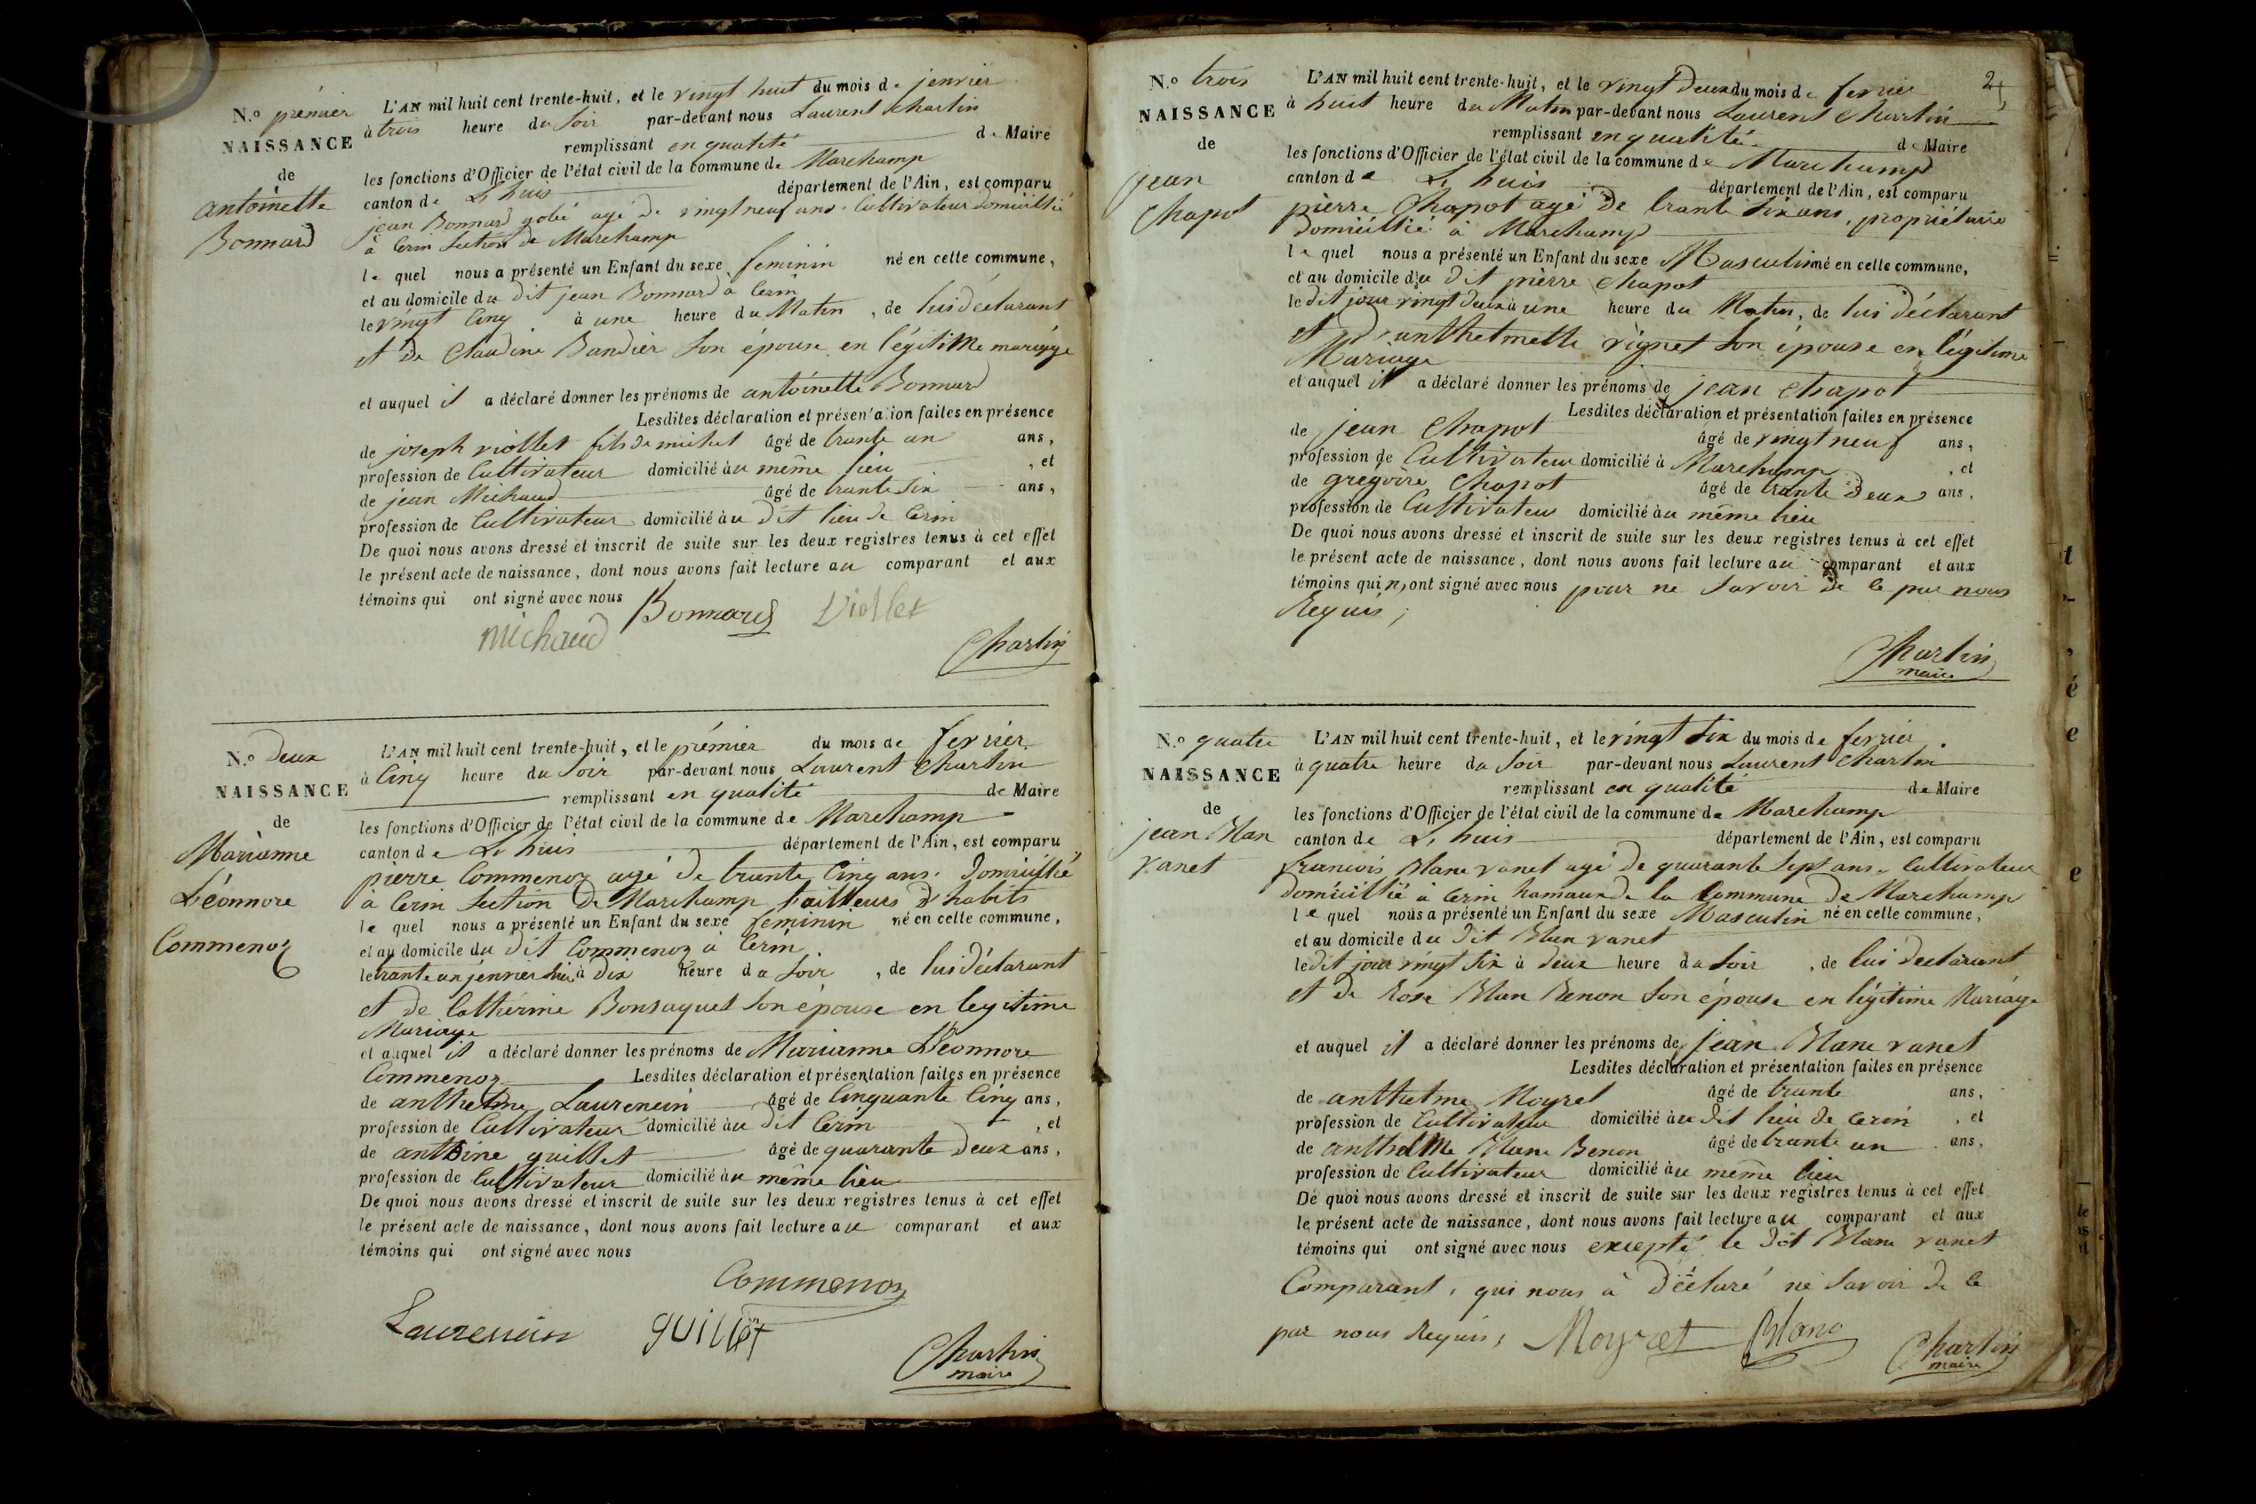 N.o prémier
NAISSANCE
de
antoinette
Bonnard
L'AN mil huit cent trente-huit, et le vingt huit du mois de jenvier
à trois heure du Soir par-devant nous Laurent Charlin
remplissant en qualité de Maire
les fonctions d'Officier de l'état civil de la commune de Marchamp
canton de L huis département de l'Ain, est comparu
jean Bonnard gobé agé de vingt neuf ans. Cultivateur domicillié
à Cerin Section de Marchamp
le quel nous a présenté un Enfant du sexe feminin né en cette commune,
et au domicile du dit jean Bonnard à Cerin
le vingt Cinq à une heure du Matin, de lui déclarant
et de Claudine Bandier Son épouse en légitiMe mariage
et auquel il a déclaré donner les prénoms de antoinette Bonnard
Lesdites déclaration et présentation faites en présence
de joseph viollet fils de michel âgé de trante un ans,
profession de Cultivateur domicilié au même lieu, et
de jean Michaud âgé de trante Six ans,
profession de Cultivateur domicilié au dit lieu de Cerin
De quoi nous avons dressé et inscrit de suite sur les deux registres tenus à cet effet
le présent acte de naissance, dont nous avons fait lecture au comparant et aux
témoins qui ont signé avec nous
Bonnard Viollet
michaud
Charlin
N.o Deux
NAISSANCE
de
Marianne
Léonnore
Commenoz
L'AN mil huit cent trente-huit, et le prémier du mois de fevrier
à Cinq heure du Soir par-devant nous Laurent Charlin
remplissant en qualité de Maire
les fonctions d'Officier de l'état civil de la commune de Marchamp
canton de L huis département de l'Ain, est comparu
pierre Commenoz agé de trante Cinq ans. Domicillié
à Cerin Section De Marchamp tailleurs d'habits
le quel nous a présenté un Enfant du sexe feminin né en cette commune,
et au domicile du dit Commenoz à Cerin
le trante un jenvier hier à dix heure du Soir, de lui déclarant
et de Catherine Bonsaquet Son épouse en legitime
Mariage
et auquel il a déclaré donner les prénoms de Marianne Léonnore
Commenoz Lesdites déclaration et présentation faites en présence
de anthelme Laurencin âgé de Cinquante Cinq ans,
profession de Cultivateur domicilié au dit Cerin, et
de anthoine guillet âgé de quarante Deux ans,
profession de Cultivateur domicilié au même lieu
De quoi nous avons dressé et inscrit de suite sur les deux registres tenus à cet effet
le présent acte de naissance, dont nous avons fait lecture au comparant et aux
témoins qui ont signé avec nous
Commenoz
Laurencin guillet
Charlin
maire
2
N.o trois
NAISSANCE
de
jean
Chapot
L'AN mil huit cent trente-huit, et le vingt Deux du mois de fevrier
à huit heure du Matin par-devant nous Laurent Charlin
remplissant en qualité de Maire
les fonctions d'Officier de l'état civil de la commune de Marchamp
canton de L huis département de l'Ain, est comparu
pierre Chapot agé de trante Six ans, propriétaire
Domicillié à Marchamp
le quel nous a présenté un Enfant du sexe Masculin né en cette commune,
et au domicile du dit pierre Chapot
le dit jour vingt deux à une heure du Matin, de lui déclarant
et d'anthelmette vignet Son épouse en légitime
Mariage
et auquel il a déclaré donner les prénoms de jean Chapot
Lesdites déclaration et présentation faites en présence
de jean Chapot âgé de vingt neuf ans,
profession de Cultivateur domicilié à Marchamp, et
de gregoire Chapot âgé de trante Deux ans,
profession de Cultivateur domicilié au même lieu
De quoi nous avons dressé et inscrit de suite sur les deux registres tenus à cet effet
le présent acte de naissance, dont nous avons fait lecture au comparant et aux
témoins qui n'ont signé avec nous pour ne Savoir de ce par nous
Requis;
Charlin
maire
N.o quatre
NAISSANCE
de
jean Blan
vanet
L'AN mil huit cent trente-huit, et le vingt Six du mois de fevrier
à quatre heure du Soir par-devant nous Laurent Charlin
remplissant en qualité de Maire
les fonctions d'Officier de l'état civil de la commune de Marchamp
canton de L huis département de l'Ain, est comparu
francois Blanc vanet agé de quarante Sept ans. Cultivateur
domicillié à Cerin hamaux de la Commune de Marchamp
le quel nous a présenté un Enfant du sexe Masculin né en cette commune,
et au domicile du dit Blan vanet
le dit jour vingt Six à deux heure du Soir, de lui déclarant
et de Rose Blan Benon Son épouse en légitime Mariage
et auquel il a déclaré donner les prénoms de jean Blanc vanet
Lesdites déclaration et présentation faites en présence
de anthelme Moyret âgé de trante ans,
profession de Cultivateur domicilié au dit lieu de Cerin, et
de anthelMe Blanc Benon âgé de trante un ans,
profession de Cultivateur domicilié au même lieu
De quoi nous avons dressé et inscrit de suite sur les deux registres tenus à cet effet
le présent acte de naissance, dont nous avons fait lecture au comparant et aux
témoins qui ont signé avec nous excepté le dit Blanc vanet
Comparant, qui nous à déclaré ne Savoir de ce
par nous Requis,
Moyret Blanc
Charlin
maire